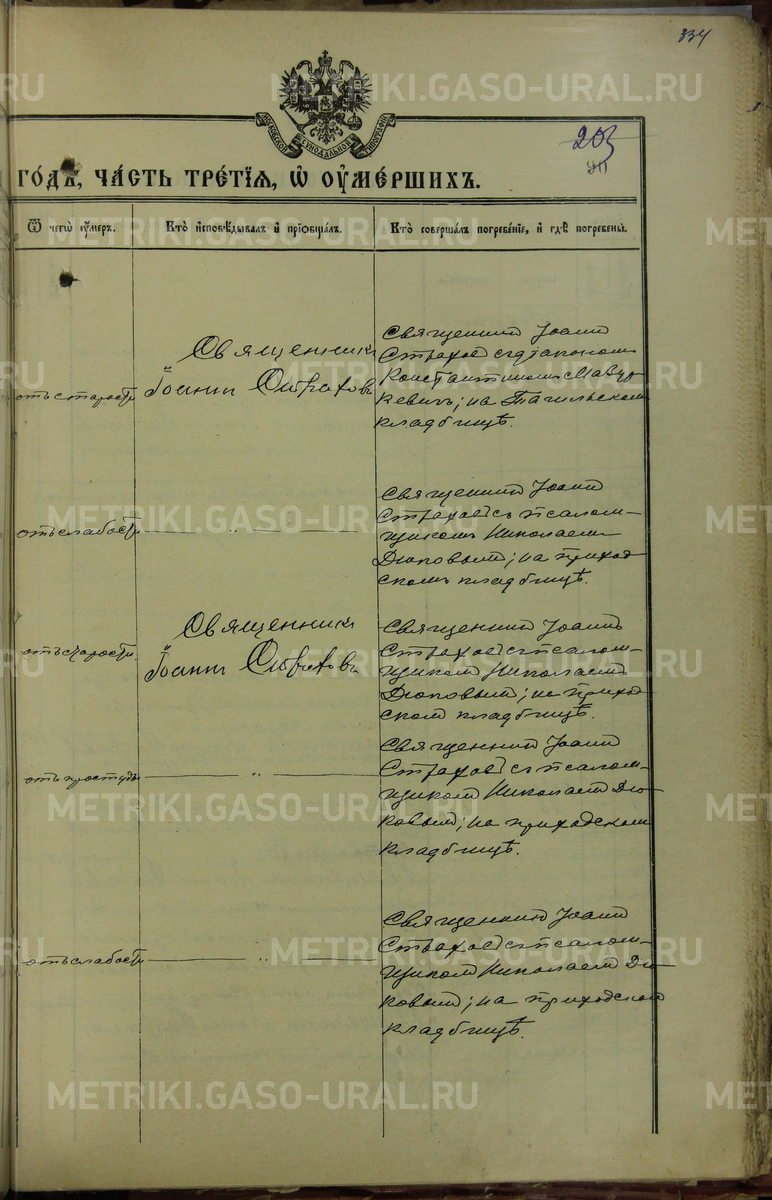 334
203
МОСКОВСКОЙ СѴНОДАЛЬНОЙ ТИПОГРАФІИ
ГОДЪ, ЧА́СТЬ ТРЕ́ТІѦ, Ѡ҆ ОУ҆МЕ́РШИХЪ.
Ѿ чегѡ̀ оу҆́меръ.
Кто̀ и҆сповѣ́дывалъ и҆ прїѡбща́лъ.
Кто̀ соверша́лъ погребе́нїе, и҆ гдѣ̀ погребены̀.
отъ старости
Священникъ
Іоаннъ Страховъ
Священник Іоанн
Страхов с діаконом
Константином Мавур
кевичъ; на Тагильском
кладбищѣ.
отъ слабости
— „ —
Священник Іоанн
Страхов съ псалом-
щикомъ Николаем
Дюковым; на приход
скомъ кладбищѣ.
отъ старости.
Священникъ
Іоаннъ Страховъ
Священник Іоаннъ
Страхов с псалом-
щиком Николаем
Дюковым; на приход
ском кладбищѣ.
отъ простуды
— „ —
Священник Іоанн
Страхов съ псалом-
щиком Николаем Дю-
ковым; на приходском
кладбищѣ.
отъ слабости
— „ —
Священник Іоанн
Страхов с псалом-
щиком Николаем Дю-
ковым; на приходском
кладбищѣ.
METRIKI.GASO-URAL.RU